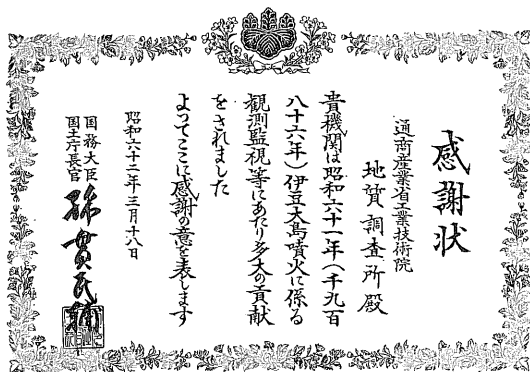 感謝状
通商産業省工業技術院
地質調査所殿
貴機関は昭和六十一年(千九百
八十六年)伊豆大島噴火に係る
観測監視等にあたり多大の貢献
をされました
よってここに感謝の意を表します
昭和六十二年三月十八日
国務大臣
国土庁長官
綿貫民輔